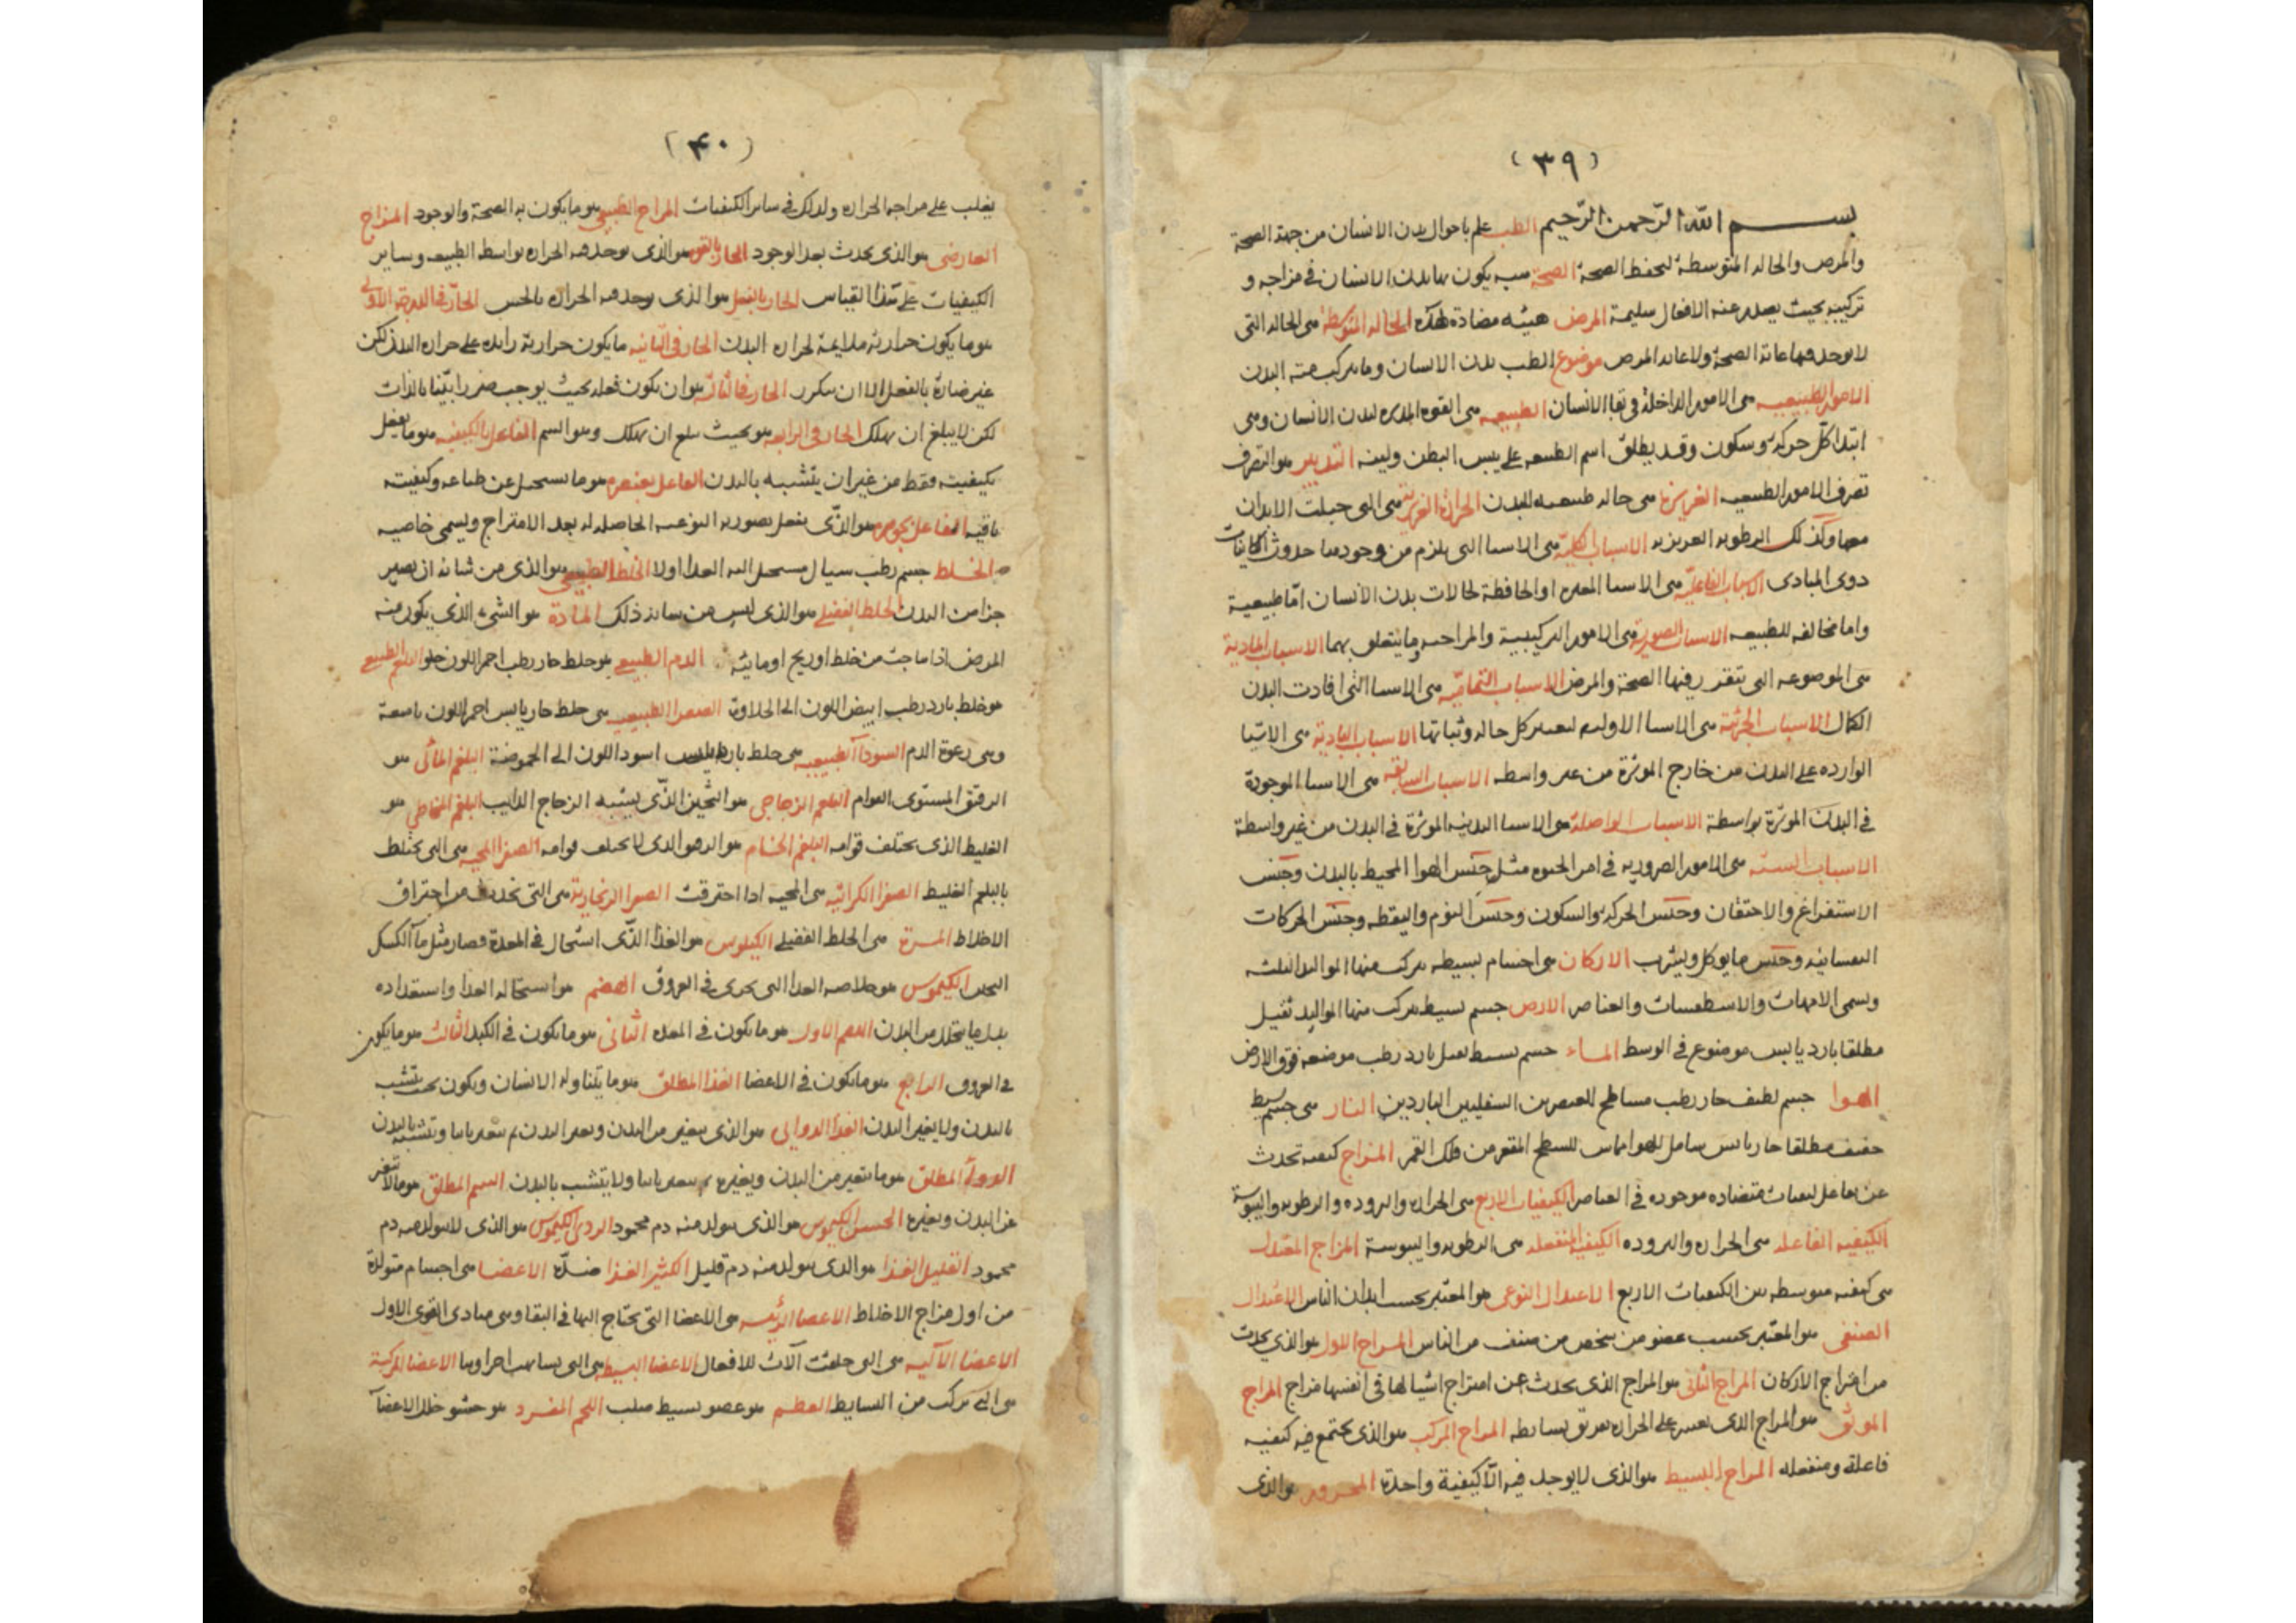 (٣٩)
بسم الله الرحمن الرحيم الطب علم باحوال بدن الانسان من جهة الصحة
والمرض والحاله المتوسطة لتحفظ الصحة الصحة هيئة يكون بها بدن الانسان في مزاجه و
تركيبه بحيث يصدر عنه الافعال سليمة المرض هيئه مضادة لهذه الحاله المتوسطة هى الحاله التى
لا يوجد فيها غاية الصحة ولا غايه المرض موضوع الطب بدن الانسان وما يتركب منه البدن
الامور الطبيعيه هى الامور الداخلة فى بقا الانسان الطبيعه هى القوه المدبره لبدن الانسان وهى
ابتدا كل حركه وسكون وقد يطلق اسم الطبيعه على يبس البطن ولينه التدبير هو التصرف
تصرف الامور الطبيعيه الغريزة هى حاله طبيعيه للبدن الحرارة الغريزية هى التى جبلت الابدان
معها وكذلك الرطوبه الغريزيه الاسباب الكلية هى الاسبا التى يلزم من وجودها حدوث الكاينات
ذوى المبادى الاسباب الفاعلية هى الاسبا المغيره او الحافظة لحالات بدن الانسان اما طبيعية
واما مخالفه للطبيعه الاسباب الصورية هى الامور التركيبية والمزاجيه وما يتعلق بهما الاسباب المادية
هى الموضوعه التى يتقرر فيها الصحة والمرض الاسباب التمامية هى الاسبا التى افادت البدن
الكمال الاسباب الجزئية هى الاسبا الاوليه لتغيير كل حاله وثباتها الاسباب البادية هى الاشيا
الوارده على البدن من خارج الموثرة من غير واسطه الاسباب السابقه هى الاسبا الموجودة
فى البدن الموثرة بواسطة الاسباب الواصلة هى الاسبا البدنيه الموثرة فى البدن من غير واسطة
الاسباب الستة هى الامور الضروريه فى امر الحيوه مثل جنس الهوا المحيط بالبدن وجنس
الاستفراغ والاحتقان وجنس الحركه والسكون وجنس النوم واليقظه وجنس الحركات
النفسانيه وجنس ما يوكل ويشرب الاركان هى اجسام بسيطه يتركب منها المواليد الثلثه
ويسمى الامهات والاسطقسات والعناصر الارض جسم بسيط يتركب منها المواليد ثقيل
مطلقا بارد يابس موضوع فى الوسط الماء جسم بسيط ثقيل بارد رطب موضعه فوق الارض
الهوا جسم لطيف حار رطب للعنصرين السفليين الباردين النار هى جسم بسيط
خفيف مطلقا حار يابس شامل للهوا مماس للسطح المقعر من فلك القمر المزاج كيفيه تحدث
عن تفاعل كيفيات متضاده موجوده فى العناصر الكيفيات الاربع هى الحراره والبروده والرطوبه واليبوسة
الكيفيه الفاعله هى الحراره والبروده الكيفيه المنفعله هى الرطوبه واليبوسة المزاج المعتدل
هى كيفيه متوسطه بين الكيفيات الاربع الاعتدال النوعى هو المعتبر بحسب ابدان الناس الاعتدال
الصنفى هو المعتبر بحسب عضو من شخص من صنف من الناس المزاج الاول هو الذى يحدث
من امتزاج الاركان المزاج الثانى هو المزاج الذى يحدث عن امتزاج اشيا لها فى انفسها مزاج المزاج
الموثق هو المزاج الذى يعسر على الحراره تفريق بسايطه المزاج المركب هو الذى يجتمع فيه كيفيه
فاعلة ومنفعله المزاج البسيط هو الذى لا يوجد فيه الا كيفية واحدة المحرور هو الذى
(۴۰)
يغلب على مزاجه الحراره وكذلك فى ساير الكيفيات المزاج الطبيعى هو ما يكون به الصحة والوجود المزاج
العارضى هو الذى يحدث بعد الوجود الحار بالقوه هو الذى يوجد فيه الحراره بواسطة الطبيعه وساير
الكيفيات على هذا القياس الحار بالفعل هو الذى يوجد فيه الحراره بالحس الحار فى الدرجة الاولى
هو ما يكون حرارته ملايمة لحراره البدن الحار فى الثانيه ما يكون حرارته زايده على حراره البدن لكن
غير ضارة بالفعل الا ان يتكرر الحار فى الثالثة هو ان يكون فعله بحيث يوجب ضررا بينا بالذات
لكن لا يبلغ ان يهلك الحار فى الرابعه هو بحيث يبلغ ان يهلك وهو السم الفاعل بالكيفيه هو ما يفعل
بكيفيته فقط من غير ان يتشبه بالبدن الفاعل بعنصره هو ما يستحيل عن طباعه وكيفيته
باقيه الفاعل بجوهره هو الذى يفعل بصورته النوعيه الحاصله له بعد الامتزاج ويسمى خاصيه
الخلط جسم رطب سيال يستحيل اليه الغذا اولا الخلط الطبيعى هو الذى من شانه ان يصير
جزا من البدن الخلط الفضلى هو الذى ليس من شانه ذلك المادة هو الشىء الذى يكون منه
المرض اذا ما حدث من خلط او ريح او مائية الدم الطبيعى هو خلط حار رطب احمر اللون حلو البلغم الطبيعى
هو خلط بارد رطب ابيض اللون الى الحلاوة الصفرا الطبيعيه هى خلط حار يابس احمر اللون ناصعة
وهى رغوة الدم السودا الطبيعيه هى خلط بارد يابس اسود اللون الى الحموضة البلغم المائى هو
الرقيق المستوى القوام البلغم الزجاجى هو الثخين الذى يشبه الزجاج الذايب البلغم المخاطى هو
الغليظ الذى يختلف قوامه البلغم الخام هو الرقيق الذى لا يختلف قوامه الصفرا المحيه هى التى يختلط
بالبلغم الغليظ الصفرا الكراثيه هى المحيه اذا احترقت الصفرا الزنجارية هى التى تحدث من احتراق
الاخلاط المرة هى الخلط الفضلى الكيلوس هو الغذا الذى استحال فى المعدة فصار مثل ماء الكشك
الثخين الكيموس هو خلاصه الغذا التى يجرى فى العروق الهضم هو استحاله الغذا واستعداده
بدل ما يتحلل من البدن الهضم الاول هو ما يكون فى المعده الثانى هو ما يكون فى الكبد الثالث هو ما يكون
فى العروق الرابع هو ما يكون فى الاعضا الغذا المطلق هو ما يتناوله الانسان ويكون بحيث يتشبه
بالبدن ولا يغير البدن الغذا الدوايى هو الذى يتغير من البدن ويغير البدن ثم يتغير ثانيا ويتشبه بالبدن
الدوا المطلق هو ما يتغير من البدن ويغيره ثم يتغير ثانيا ولا يتشبه بالبدن السم المطلق هو ما لا يتغير
عن البدن ويغيره الحسن الكيموس هو الذى يتولد منه دم محمود الردى الكيموس هو الذى لا يتولد منه دم
محمود القليل الغذا هو الذى يتولد منه دم قليل الكثير الغذا ضده الاعضا هى اجسام متولدة
من اول مزاج الاخلاط الاعضا الرئيسه هى الاعضا التى يحتاج اليها فى البقا وهى مبادى القوى الاول
الاعضا الآليه هى التى جعلت آلات للافعال الاعضا البسيطه هى التى يتشابه اجزاوها الاعضا المركبة
هى التى تتركب من البسايط العظم هو عضو بسيط صلب اللحم المفرد هو حشو خلل الاعضا